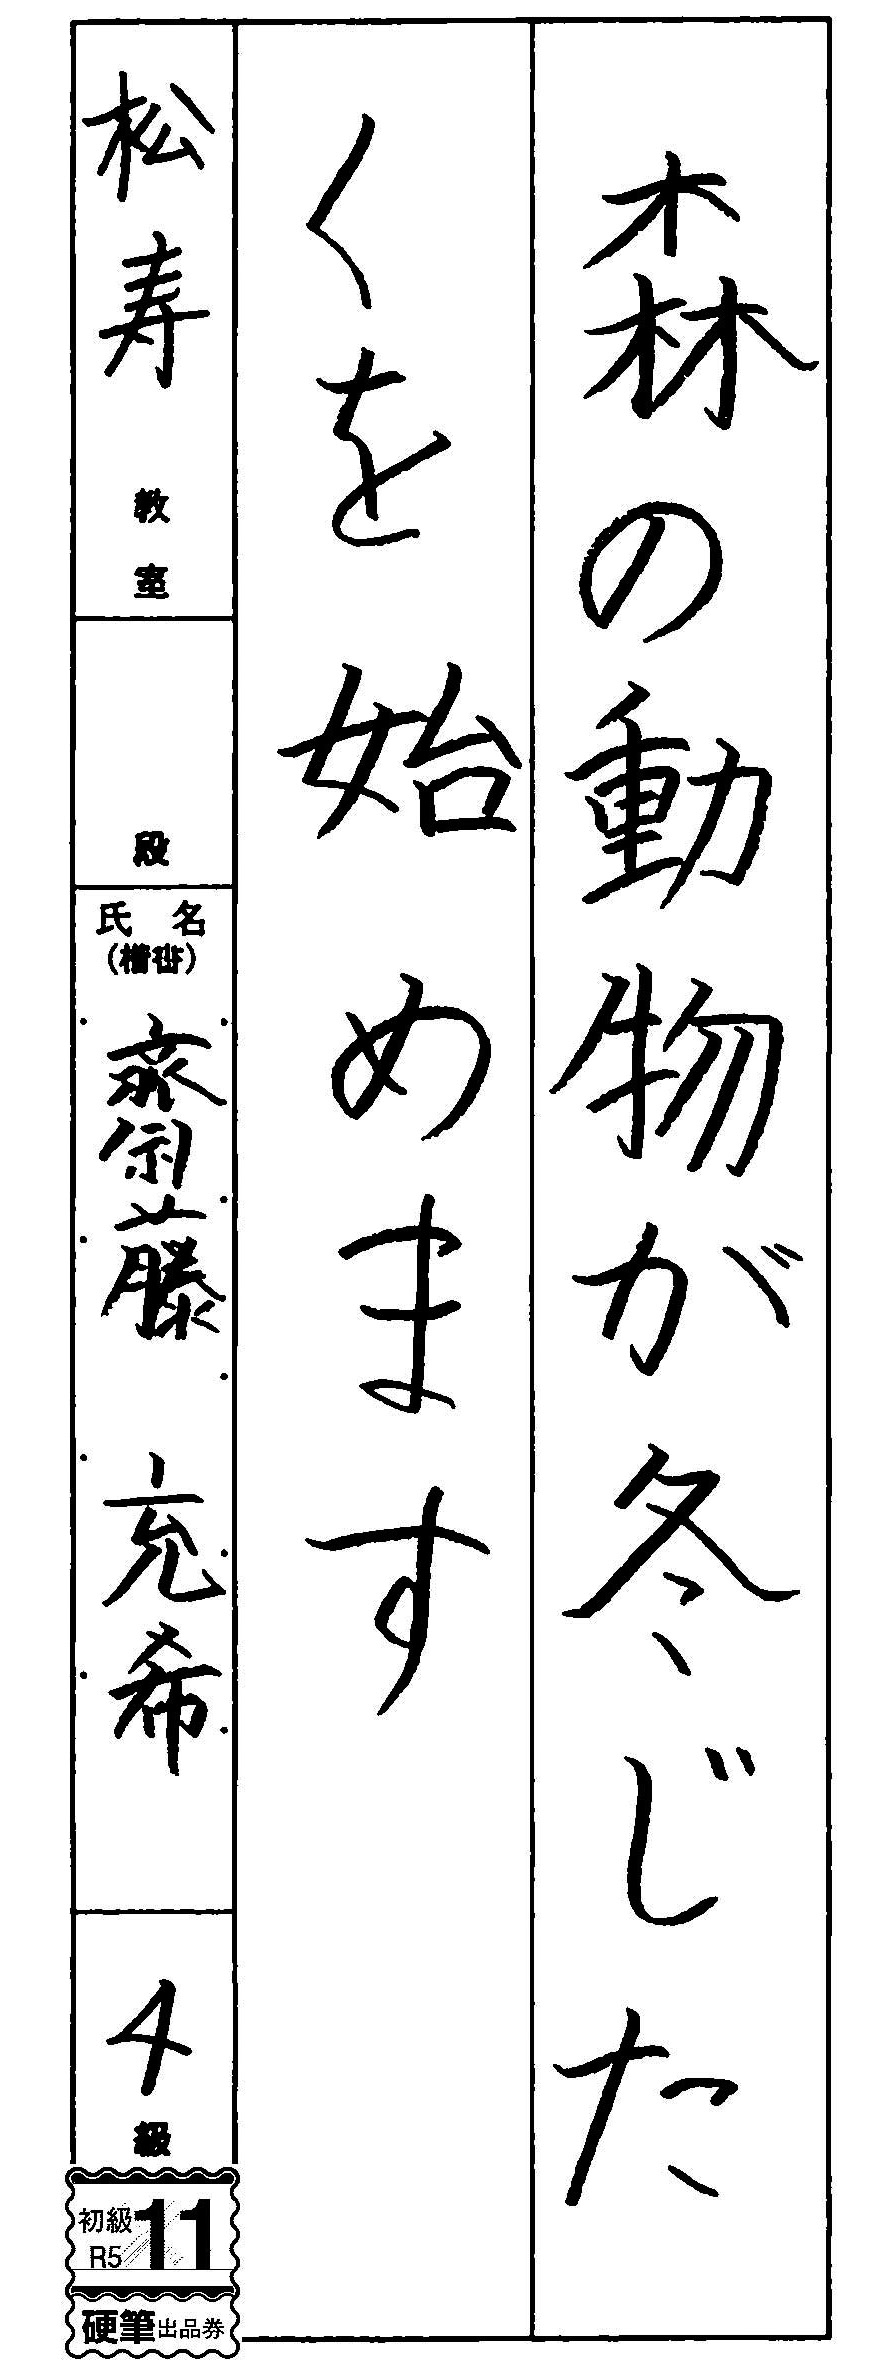 森の動物が冬じた
くを始めます
松寿教室
段
氏名
(楷書)
齋藤 充希
4級
初級
R5
11
硬筆出品券